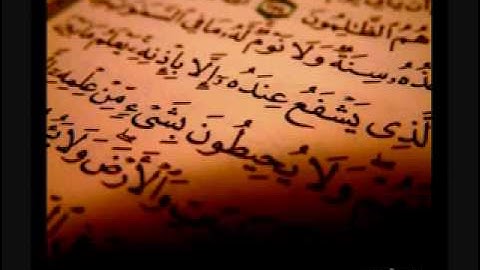 هُمُ ٱلظَّٰلِمُونَ
خُذُهُۥ سِنَةٌ وَلَا نَوْمٌ لَّهُۥ مَا فِى ٱلسَّمَٰوَٰتِ
ٱلَّذِى يَشْفَعُ عِندَهُۥٓ إِلَّا بِإِذْنِهِۦ يَعْلَمُ مَا
وَلَا يُحِيطُونَ بِشَىْءٍ مِّنْ عِلْمِهِۦٓ
وَٱلْأَرْضَ وَلَا